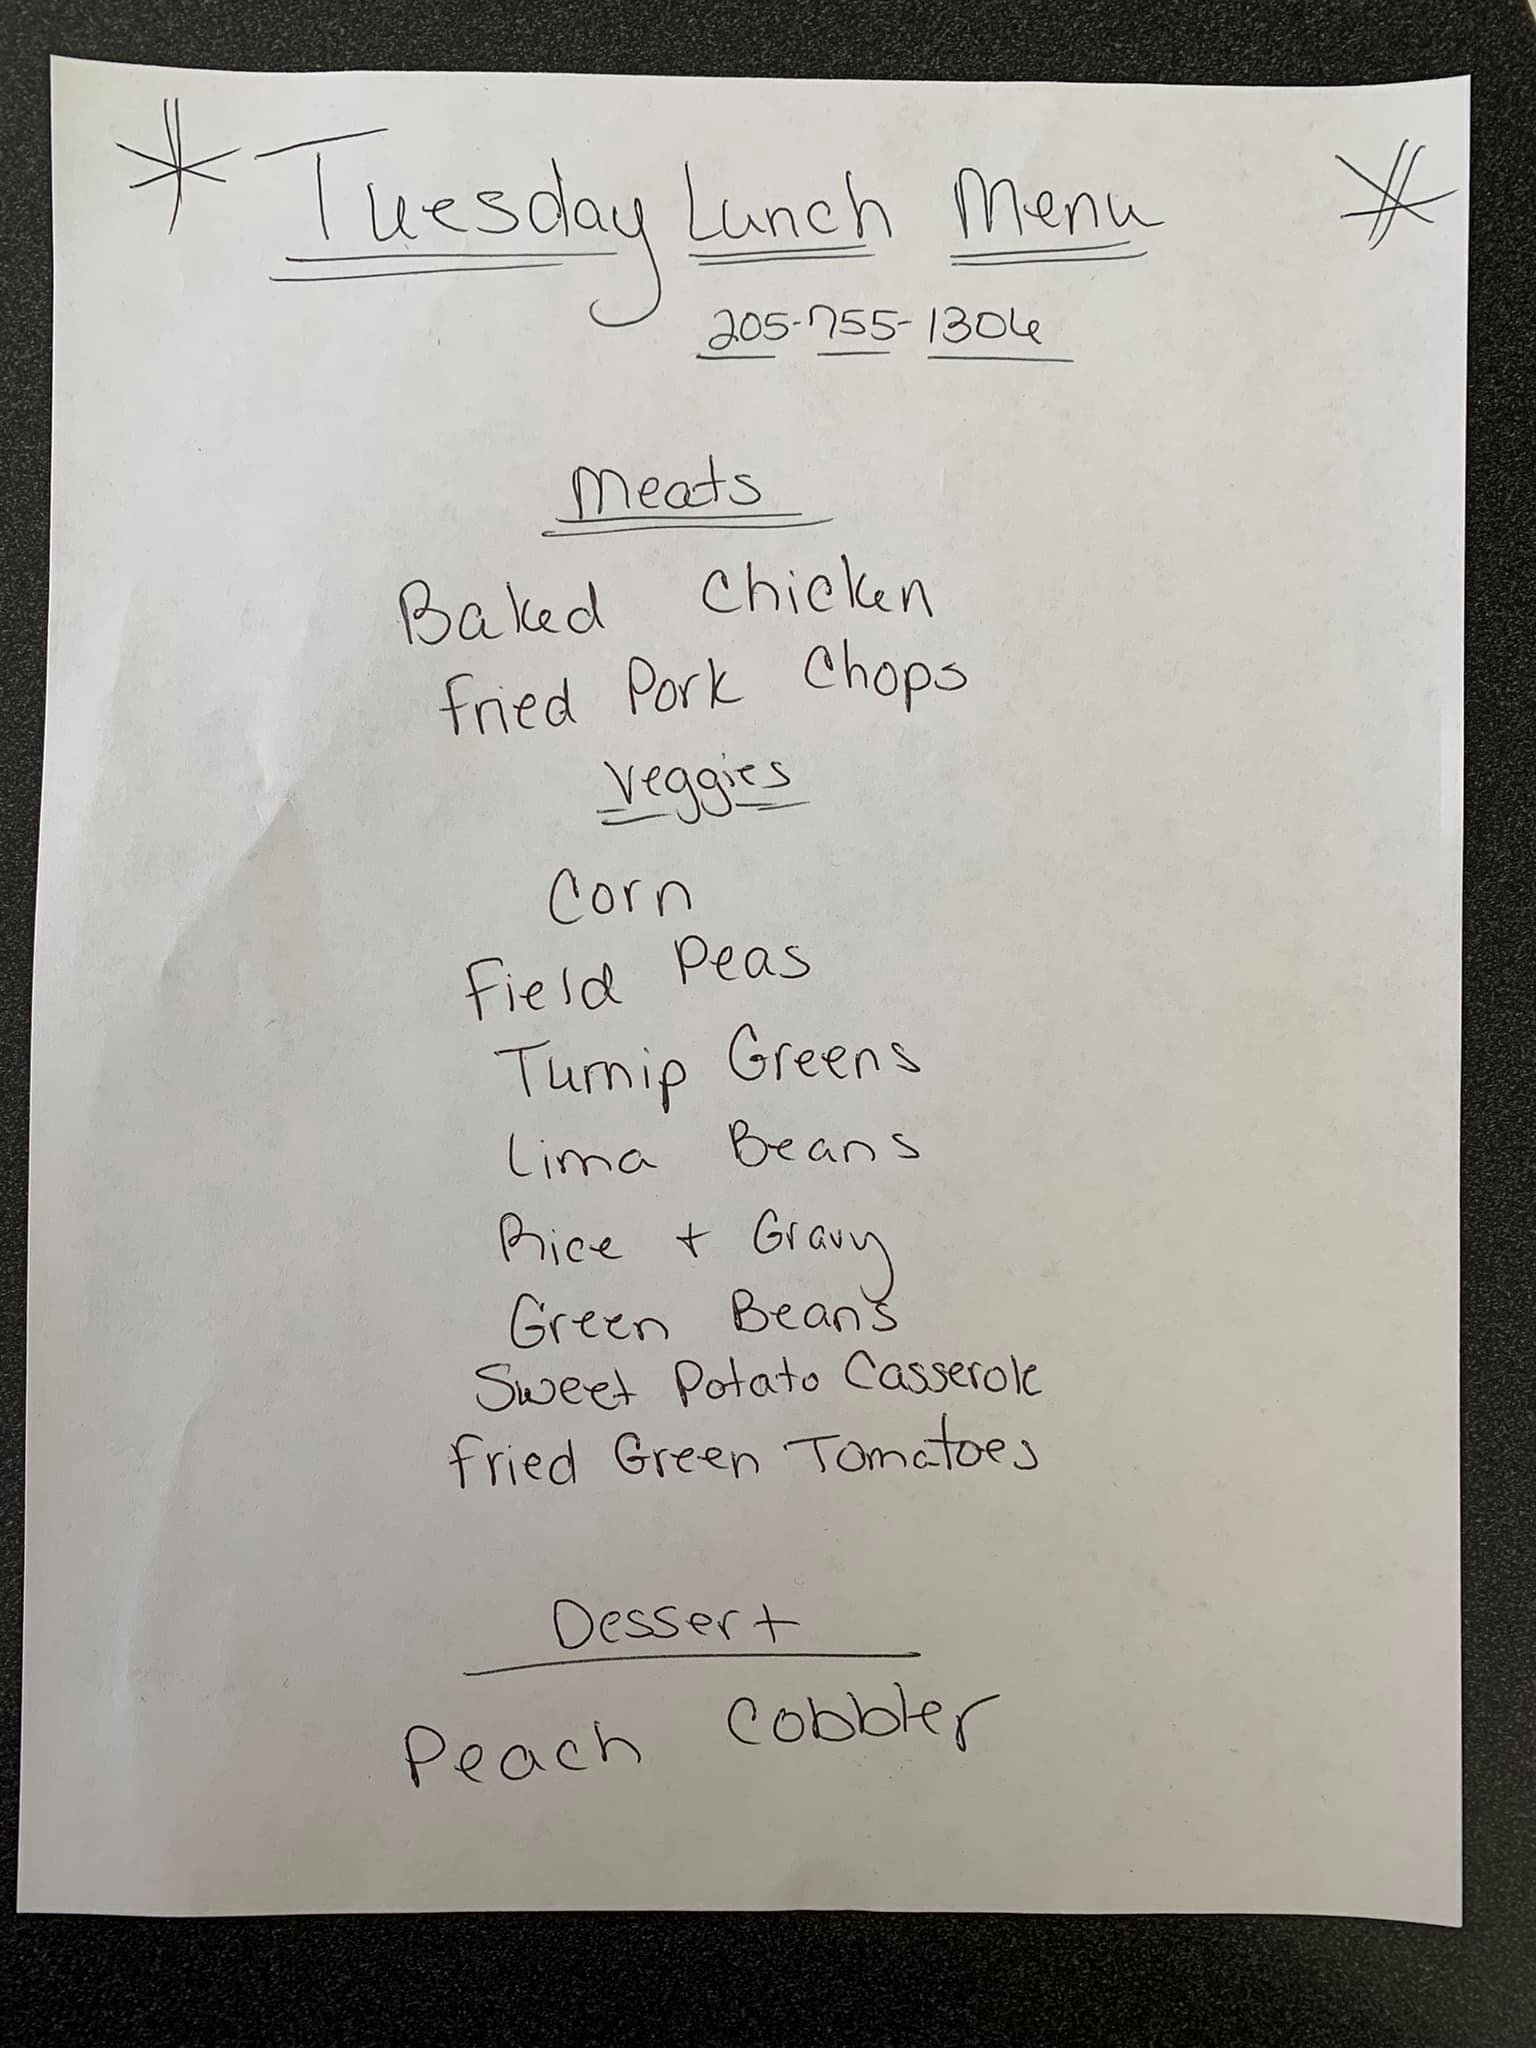 * Tuesday Lunch Menu *
205-755-1306
Meats
Baked Chicken
Fried Pork Chops
Veggies
Corn
Field Peas
Turnip Greens
Lima Beans
Rice + Gravy
Green Beans
Sweet Potato Casserole
Fried Green Tomatoes
Dessert
Peach Cobbler